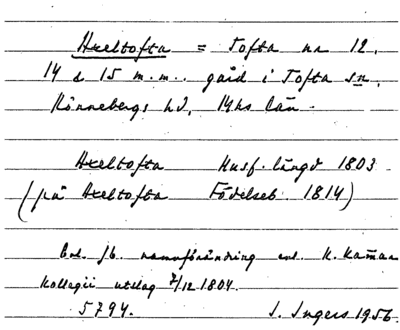 Axeltofta = Tofta nr 12,
14 o 15 m.m. gård i Tofta sn,
Rönnebergs hd, Mhs län.
Axeltofta Husf. längd 1803
(på Axeltofta Födelseb. 1814)
Enl. fb. namnförändring enl. K. Kamar
Kollegii utslag 7/12 1804.
5794. I. Ingers 1956.